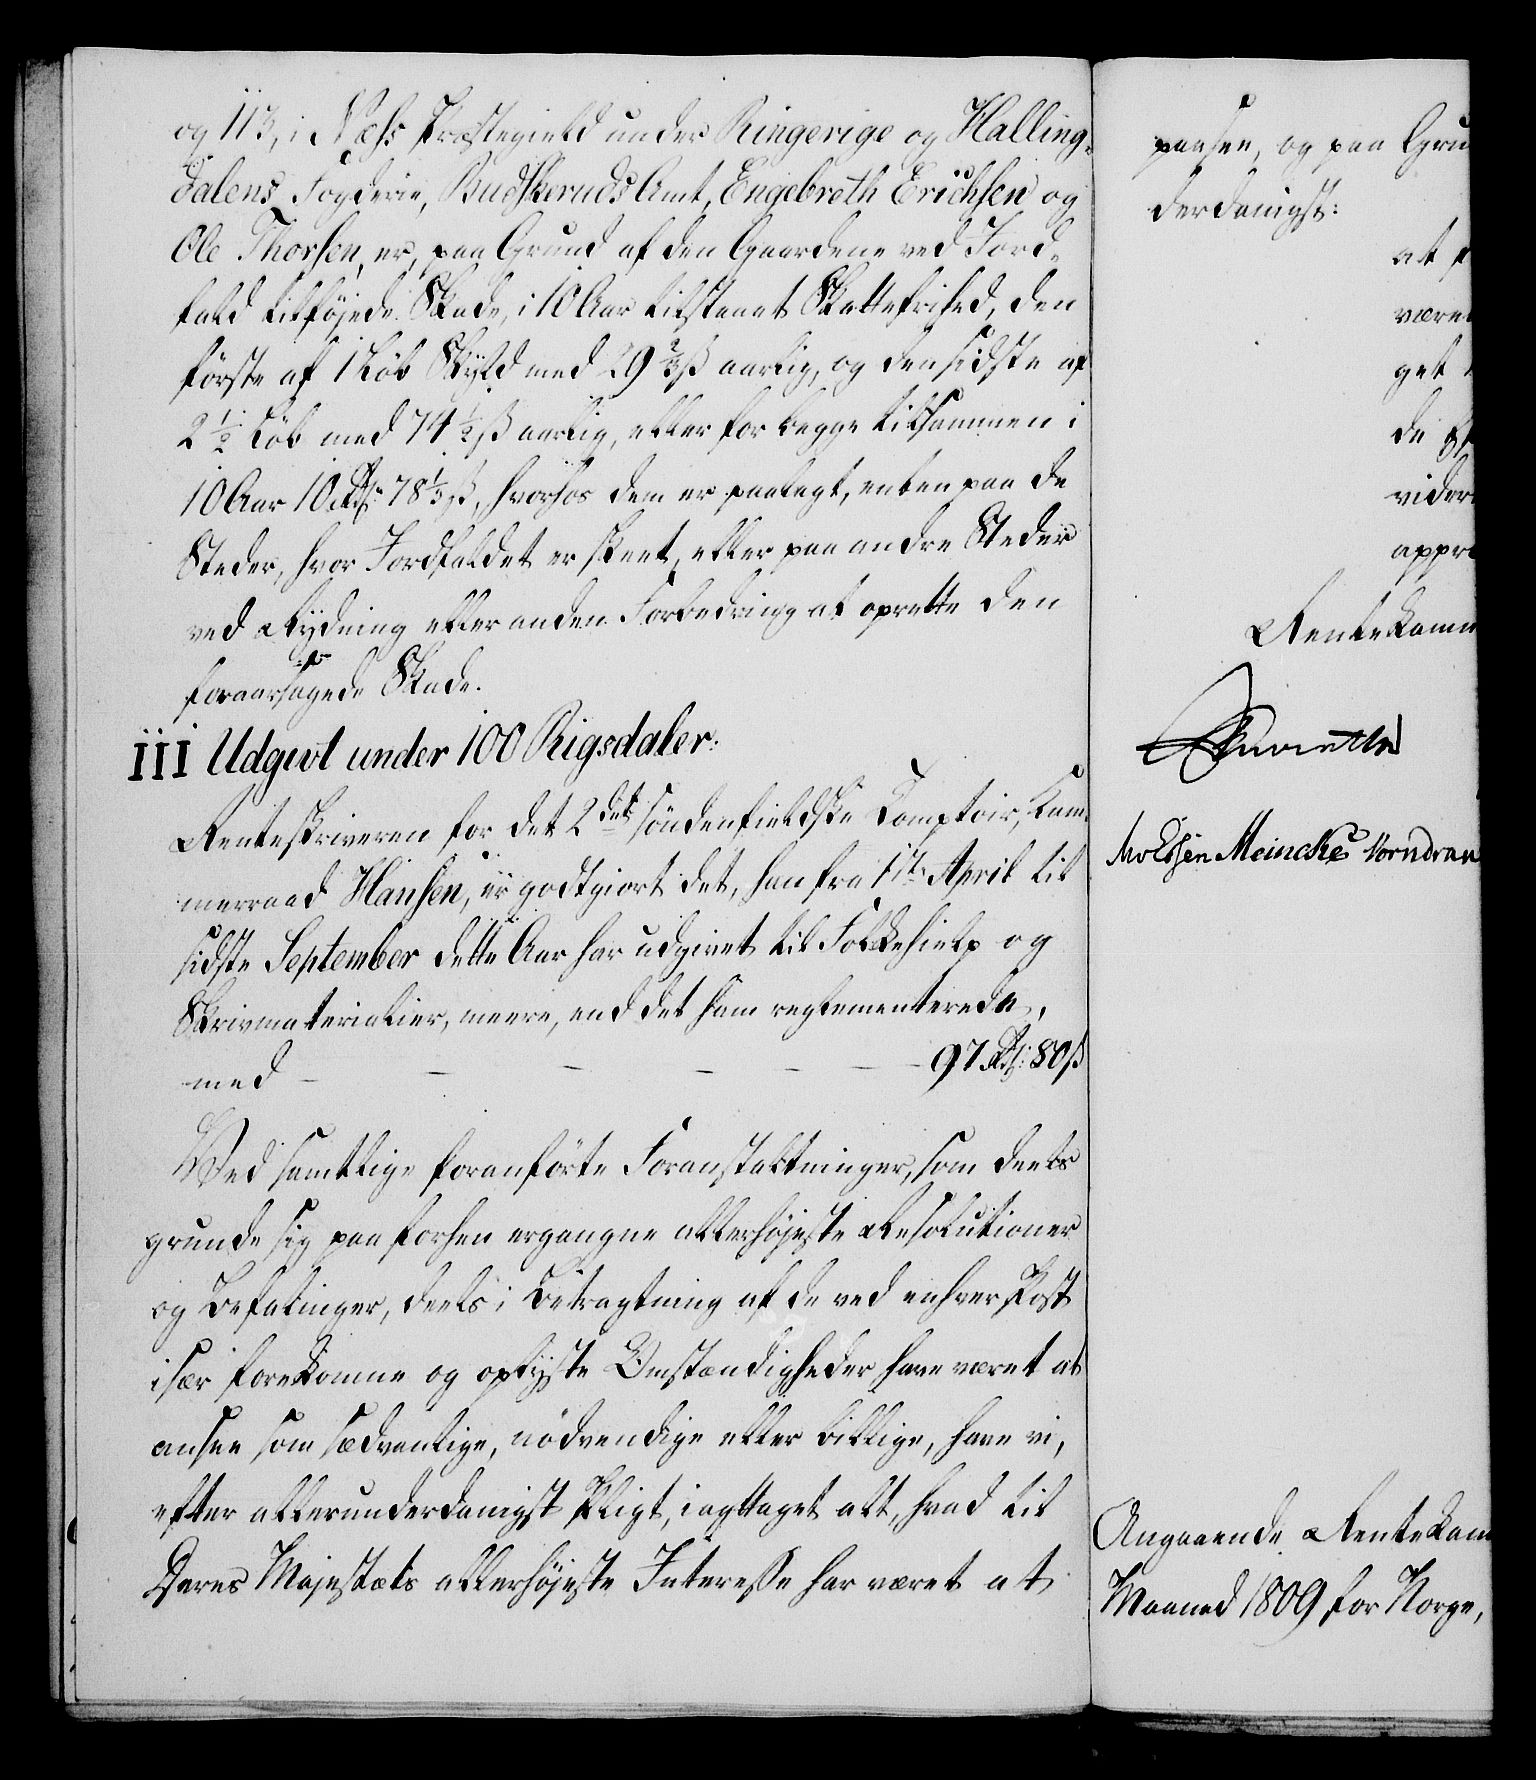 og 113, i Næss Præstegield under Ringerige og Halling-
dalens Fogderie, Budskeruds Amt, Engebreth Erichsen og
Ole Thorsen, er, paa Grund af den Gaardene ved Jord-
fald tilføjede Skade, i 10 Aar tilstaaet Skattefrihed, den
første af 1 Løb Skyld med 29 2/3 ß aarlig, og den sidste af
2 1/2 Løb med 74 1/2 ß aarlig, eller for begge tilsammen i
10 Aar 10 Rd: 78 1/3 ß, hvorhos dem er paalagt, enten paa de
Steder, hvor Jordfaldet er skeet, eller paa andre Steder
ved Rydning eller anden Forbedring at oprette den
foraarsagede Skade.
III Udgivt under 100 Rigsdaler:
Renteskriveren for det 2det søndenfieldske Comptoir, Kam-
merraad Hansen, er godtgiort det, han fra 1ste April til
sidste September dette Aar har udgivet til Folkehielp og
Skrivmaterialier, meere, end det ham reglementerede,
med – – – – – 97 Rd: 80 ß
Ved samtlige foranførte Foranstaltninger, som deels
grunde sig paa forhen ergangne allerhøjeste Resolutioner
og Befalinger, deels i Betragtning af de ved enhver Post
især forekomne og oplyste Omstændigheder have været at
ansee som sædvanlige, nødvendige eller billige, have vi,
efter allerunderdanigst Pligt, iagttaget alt, hvad til
Deres Majestæts allerhøjeste Interesse har været at
paasee, og paa Gru
derdanigst:
at
være
get
de
videre
appro
Rentekamm
Meincke Vorndran
Angaaende Rentekam
Maaned 1809 for Norge,